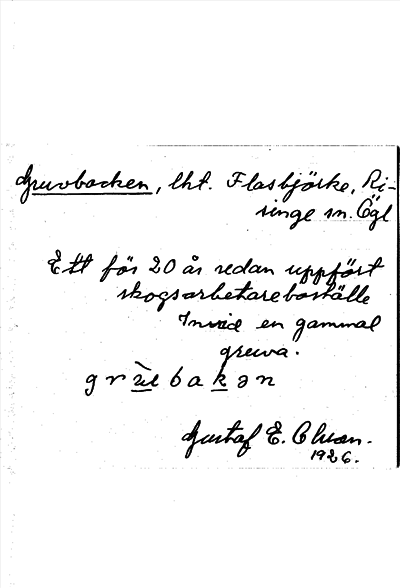 Gruvbacken, lht. Flasbjörke, Ri-
singe sn. Ögl
Ett för 20 år sedan uppfört
skogsarbetareboställe
Invid en gammal
gruva.
grùbakən
Gustaf E. Olsson.
1926.